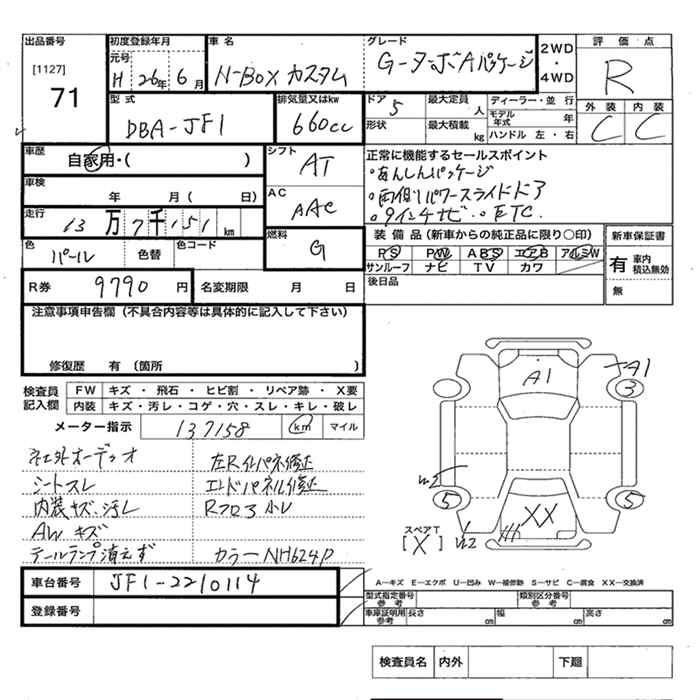 出品番号
[1127]
71
初度登録年月
元号
H 26年 6月
車名
N-BOX カスタム
グレード
G-ターボAパッケージ
2WD
・
4WD
評価点
R
外装 内装
C C
型式
DBA-JF1
排気量又はkw
660cc
ドア
5
形状
最大定員 人
最大積載 kg
ディーラー・並行
モデル年式 年
ハンドル 左・右
車歴
自家用・( )
シフト
AT
正常に機能するセールスポイント
・あんしんパッケージ
・両側パワースライドドア
・9インチナビ ・ETC.
車検
年 月 ( 日)
AC
AAC
走行
13万7千151km
燃料
G
色
パール
色替
色コード
装備品(新車からの純正品に限り○印)
PS PW ABS エアB アルミW
サンルーフ ナビ TV カワ
後日品
新車保証書
有 車内積込無効
無
R券 9790 円
名変期限 月 日
注意事項申告欄(不具合内容等は具体的に記入して下さい)
修復歴 有(箇所 )
検査員記入欄
FW キズ・飛石・ヒビ割・リペア跡・X要
内装 キズ・汚レ・コゲ・穴・スレ・キレ・破レ
メーター指示 137158 km マイル
社外オーディオ
シートスレ
内装キズ、汚レ
AWキズ
テールランプ消えず
左Rインパネ修正
エンドパネル修正
Rフロア
カラーNH624P
A1
A1
3
5
5
W2
XX
スペアT
[X]
W2
車台番号 JF1-2210114
登録番号
A―キズ E―エクボ U―凹み W―補修跡 S―サビ C―腐食 XX―交換済
型式指定番号
参考
類別区分番号
参考
車庫証明用
参考
長さ cm 幅 cm 高さ cm
検査員名 内外 下廻